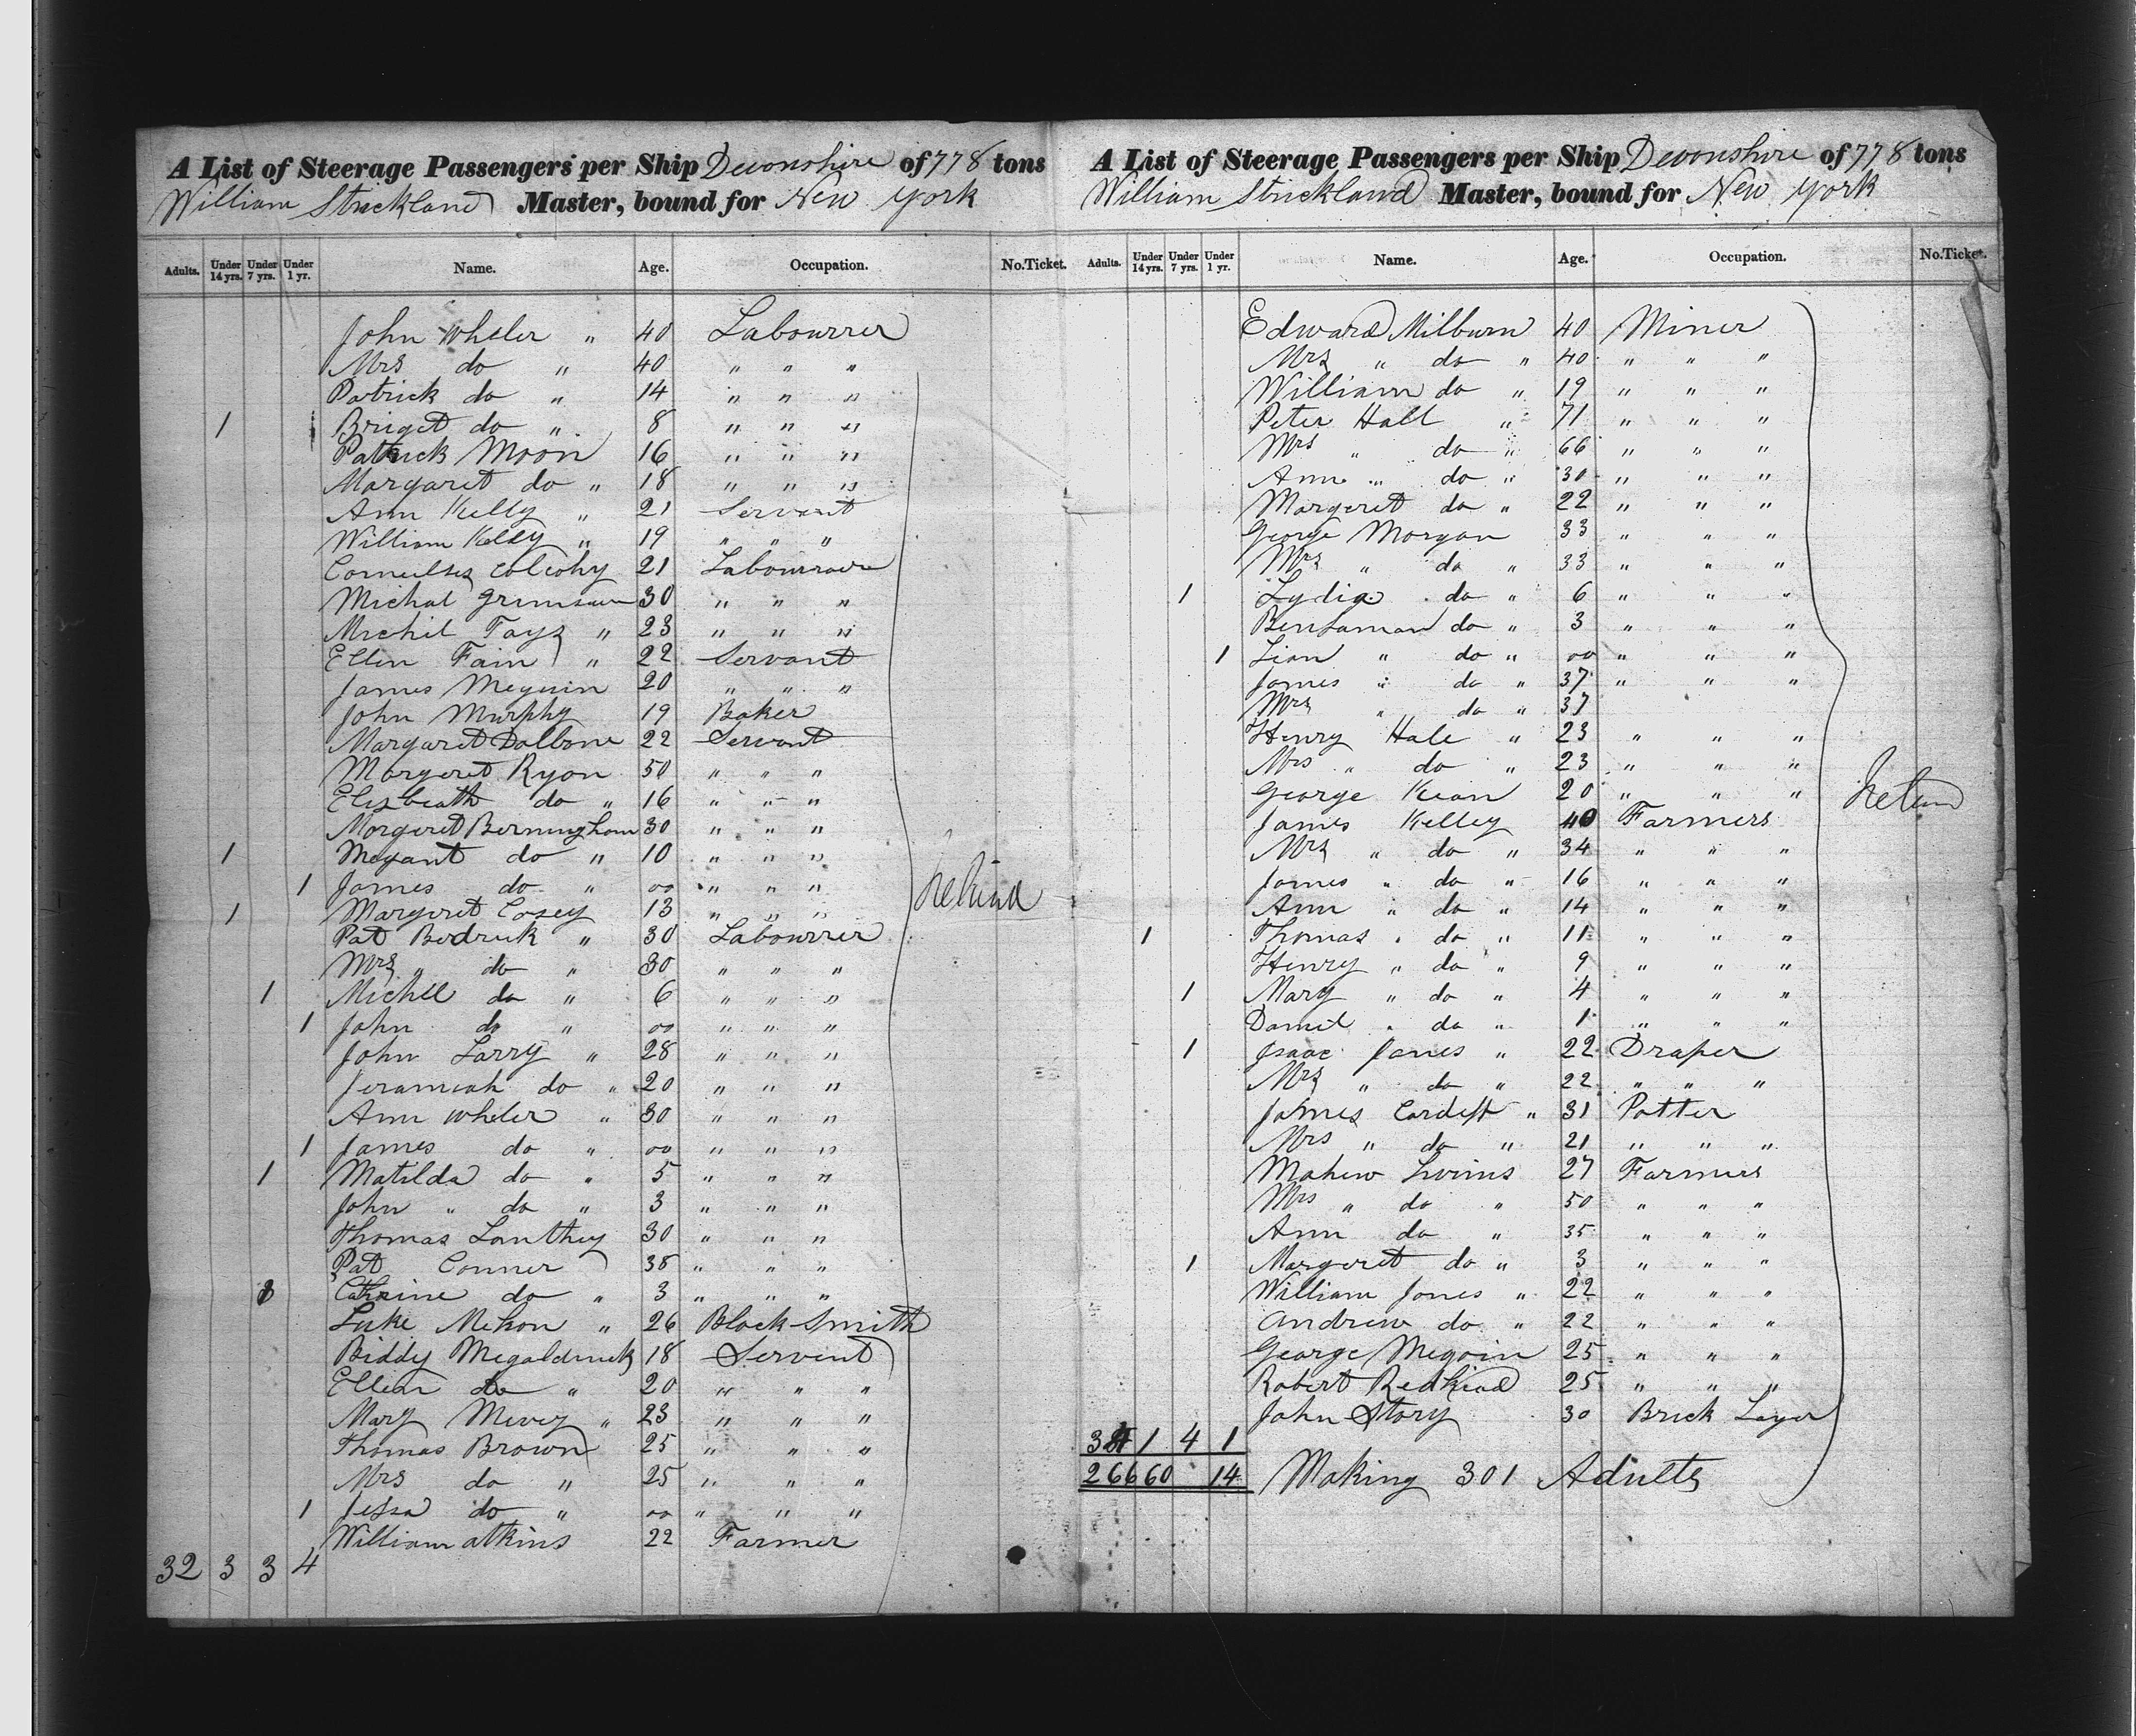 A List of Steerage Passengers per Ship Devonshire of 778 tons
William Strickland Master, bound for New York
Adults. Under 14 yrs. Under 7 yrs. Under 1 yr. Name. Age. Occupation. No. Ticket.
John Wheler " 40 Labourrer
Mrs do " 40 " " "
Patrick do " 14 " " "
1 Briget do " 8 " " "
Patrick Moon 16 " " "
Margaret do " 18 " " "
Ann Kelly " 21 Servant
William Kelly " 19 " " "
21
Michal 30 " " "
Michil Fays " 23 " " "
Ellen Fain " 22 Servant
James Meguin 20 " " "
John Murphy 19 Baker
Margaret Dalbone 22 Servant
Margeret Ryon 50 " " "
Elizbeath do " 16 " " "
Morgeret Berningham 30 " " "
1 do " 10 " " "
1 James do " 00 " " "
1 Margeret Casey 13 " " "
Pat Bedrick " 30 Labourrer
Mrs " do " 30 " " "
1 Michel do " 6 " " "
1 John do " 00 " " "
John Larry " 28 " " "
Jeramiah do " 20 " " "
Ann Wheler " 30 " " "
1 James do " 00 " " "
1 Matilda do " 5 " " "
John " do " 3 " " "
Thomas Lanthey 30 " " "
Pat Conner 35 " " "
1 Cathrine do " 3 " " "
Luke Mehon " 26 Block Smith
Biddy 18 Servent
Ellen do " 20 " " "
Mary Mevey " 23 " " "
Thomas Brown 25 " " "
Mrs do " 25 " " "
1 Jessa do " 00 " " "
William Atkins 22 Farmer
32 3 3 4
A List of Steerage Passengers per Ship Devonshire of 778 tons
William Strickland Master, bound for New York
Adults. Under 14 yrs. Under 7 yrs. Under 1 yr. Name. Age. Occupation. No. Ticket.
Edward Milburn 40 Miner
Mrs " do " 40 " " "
William do " 19 " " "
Peter Hall " 71 " " "
Mrs " do " 66 " " "
Ann " do " 30 " " "
Margeret do " 22 " " "
George Morgan 33 " " "
Mrs " do " 33 " " "
1 Lydia do " 6 " " "
Bensaman do " 3 " " "
1 Lian " do " 00 " " "
James " do " 37 " " "
Mrs " do " 37
Henry Hale " 23 " " "
Mrs " do " 23 " " "
George Kean 20 " " "
James Kelley 40 Farmers
Mrs " do " 34 " " "
James " do " 16 " " "
Ann " do " 14 " " "
1 Thomas " do " 11 " " "
Henry " do " 9 " " "
1 Mary " do " 4 " " "
Daniel " do " 1 " " "
1 Isaac Janes " 22 Draper
Mrs " do " 22 " " "
James Cardiff " 31 Potter
Mrs " do " 21 " " "
Mahew 27 Farmers
Mrs " do " 50 " " "
Ann do " 35 " " "
1 Margeret do " 3 " " "
William Jones " 22 " " "
Andrew do " 22 " " "
George Megoin 25 " " "
Robert Redhead 25 " " "
John Story 30 Brick Layer
1 4 1
266 60 14 Making 301 Adults